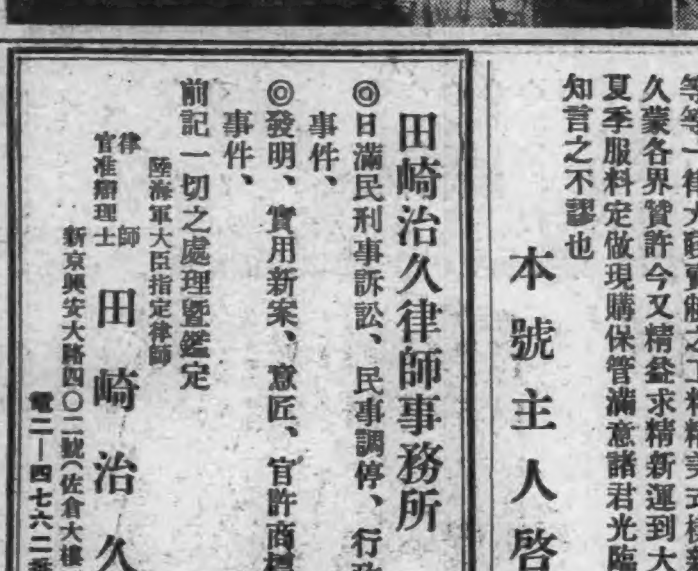 久蒙各界贊許今又精益求精新運到大
夏季服料定做現購保管滿意諸君光臨
知言之不謬也
本號主人啓
田崎治久律師事務所
◎日滿民刑事訴訟、民事調停、行政
事件、
◎發明、實用新案、意匠、官許商標
事件、
前記一切之處理曁鑑定
陸海軍大臣指定律師
律師
官准辯理士
田崎治久
新京興安大路四〇二號(佐倉大樓
電二―四七六二番